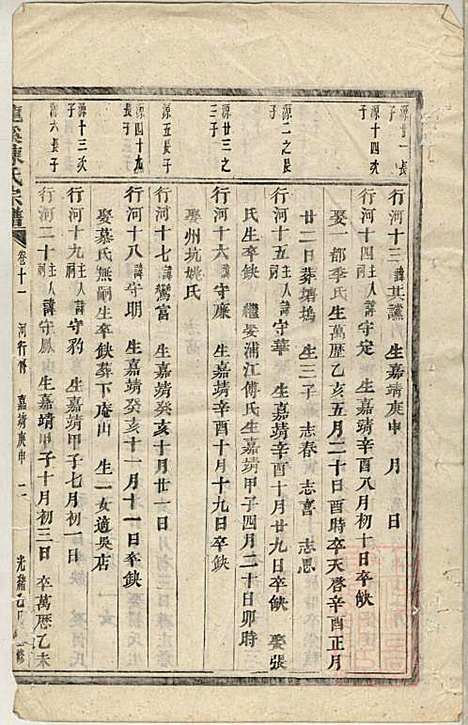 源廿一長
子
行河十三 諱其讜 生嘉靖庚申 月 日
源十四次
子
行河十四 主人祠 諱守定 生嘉靖辛酉八月初十日卒缺
娶一都季氏生萬歷乙亥五月二十日酉時卒天啓辛酉正月
廿二日葬塘塢 生三子 志春 志喜 志思
源二之長
子
行河十五 主人祠 諱守華 生嘉靖辛酉十月廿九日卒缺 娶張
氏生卒缺 繼娶浦江傅氏生嘉靖甲子四月二十日卯時
源廿三之
子
行河十六 諱守廉 生嘉靖辛酉十月十九日卒缺
娶州坑姚氏
源五長子
行河十七 諱鸞富 生嘉靖癸亥十月廿一日
源四十九
長子
行河十八 諱守明 生嘉靖癸亥十一月十一日卒缺
娶慕氏無嗣生卒缺葬下庵山 生一女適吳店
源十三次
子
行河十九 主人祠 諱守豹 生嘉靖甲子七月初一日
源六長子
行河二十 主人祠 諱守鳳 生嘉靖甲子十月初三日 卒萬歷乙未
龍溪陳氏宗譜 卷十一 河行傳 嘉靖庚申 二 光緒乙 修